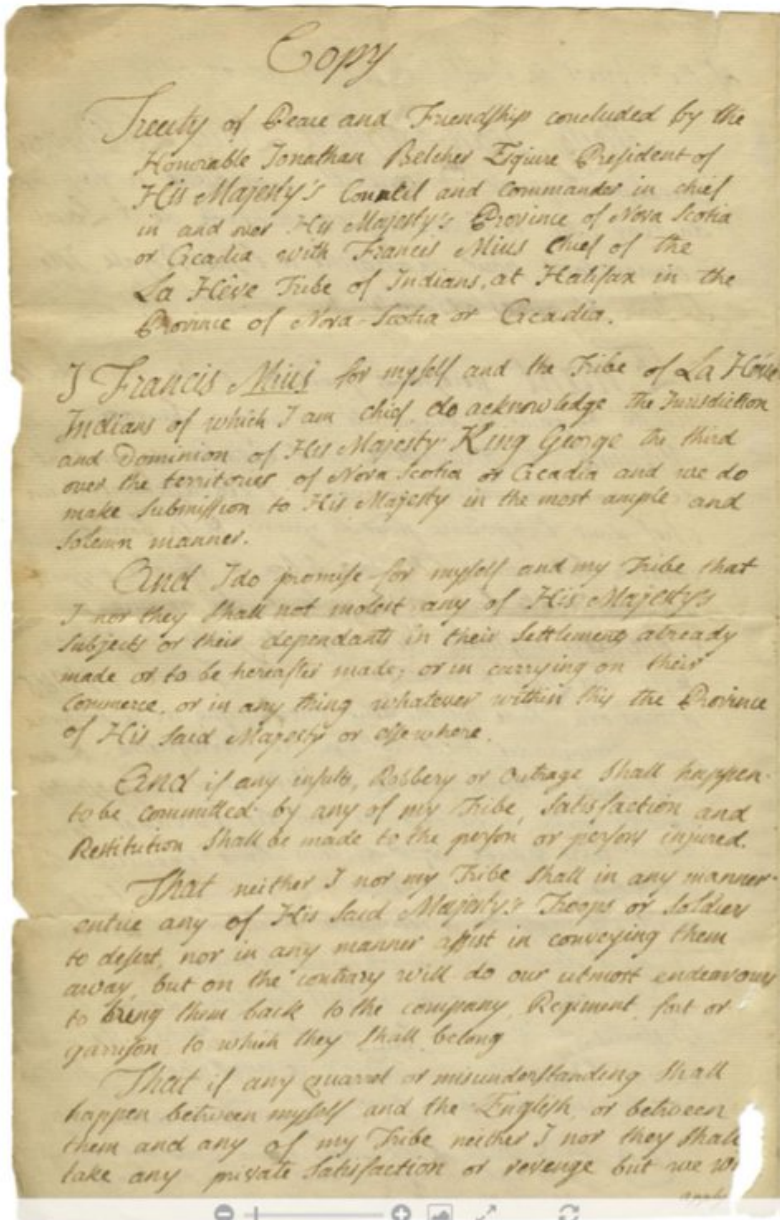 Copy
Treaty of Peace and Friendship concluded by the
Honorable Jonathan Belcher Esquire President of
His Majesty's Council and Commander in chief
in and over His Majesty's Province of Nova Scotia
or Accadia with Francis Mius Chief of the
La Hève Tribe of Indians, at Halifax in the
Province of Nova-Scotia or Accadia.
I Francis Mius for myself and the Tribe of La Hève
Indians of which I am chief, do acknowledge the Jurisdiction
and Dominion of His Majesty King George the third
over the territories of Nova Scotia or Accadia and we do
make Submission to His Majesty in the most ample and
Solemn manner.
And I do promise for myself and my Tribe that
I nor they Shall not molest any of His Majesty's
Subjects or their dependants in their Settlements already
made or to be hereafter made; or in carrying on their
Commerce, or in any thing whatever within this the Province
of His Said Majesty or elsewhere.
And if any insults, Robbery or Outrage Shall happen
to be committed by any of my Tribe, Satisfaction and
Restitution Shall be made to the person or persons injured.
That neither I nor my Tribe Shall in any manner
entice any of His Said Majesty's Troops or Soldiers
to desert, nor in any manner assist in conveying them
away, but on the contrary will do our utmost endeavours
to bring them back to the Company, Regiment, fort or
garrison to which they Shall belong
That if any Quarrel or misunderstanding Shall
happen between myself and the English, or between
them and any of my Tribe neither I nor they Shall
take any private Satisfaction or revenge but we
apply